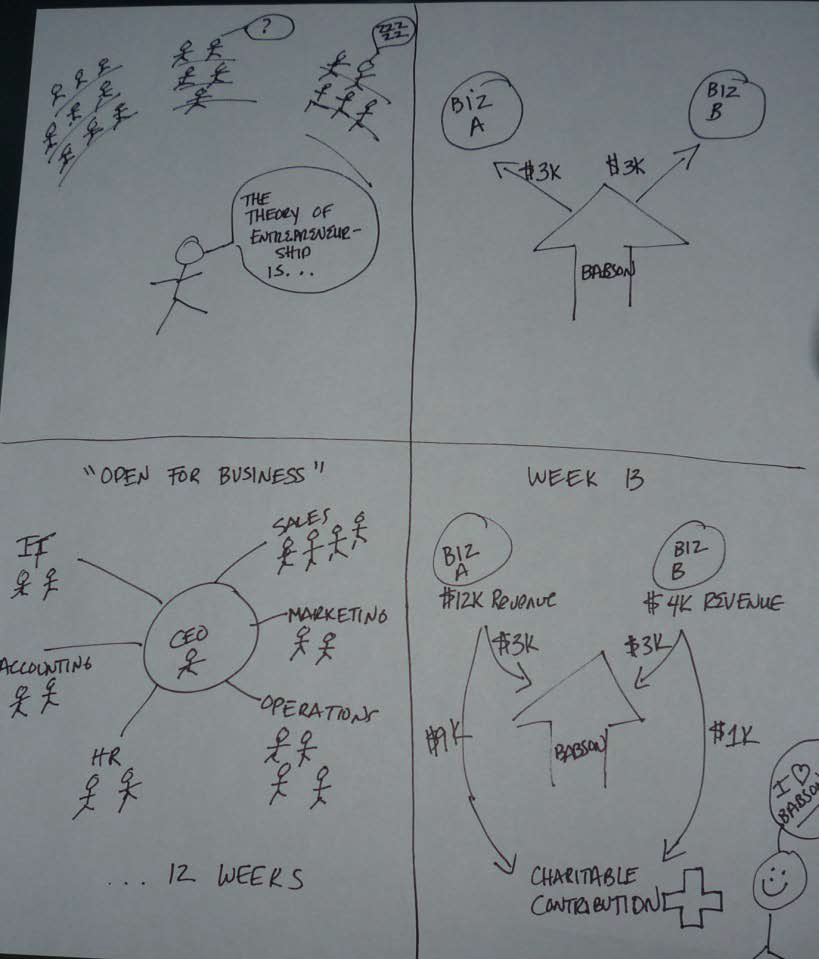 ?
ZZZ
ZZ
THE
THEORY OF
ENTREPRENEUR-
SHIP
IS...
BIZ
A
BIZ
B
$3K
$3K
BABSON
"OPEN FOR BUSINESS"
IT
SALES
CEO
MARKETING
ACCOUNTING
OPERATIONS
HR
... 12 WEEKS
WEEK 13
BIZ
A
$12K Revenue
BIZ
B
$4K REVENUE
$3K
$3K
$9K
BABSON
$1K
I ♡
BABSON
CHARITABLE
CONTRIBUTION